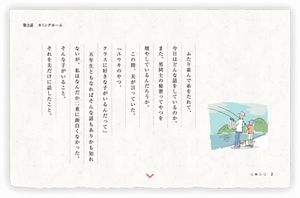 第2話 キリングホーム
ふたり並んであをたれて、
今日はどんな話をしているのか。
また、男同士の秘密ってやつを
増やしているんだろうか。
この間、夫が言っていた。
「ユウキのやつ、
クラスに好きな子がいるんだって」
五年生ともなればそんな話もありかも知れ
ないが、私はなんだか二重に面白くなかった。
そんな子がいること。
それを夫だけに話したこと。
2